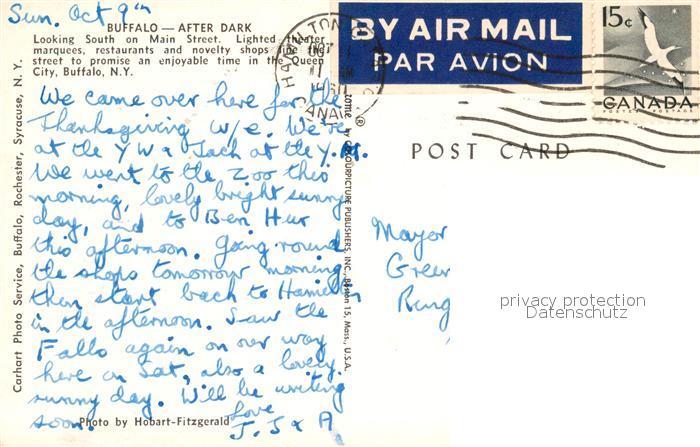 Sun. Oct 9th
BUFFALO — AFTER DARK
Looking South on Main Street. Lighted theater
marquees, restaurants and novelty shops line the
street to promise an enjoyable time in the Queen
City, Buffalo, N.Y.
We came over here for the
Thanksgiving w/e. We're
at the YW & Jach at the Y.M.
We went to the Zoo this
morning, lovely bright sunny
day, and to Ben Hur
this afternoon. Going round
the shops tomorrow morning
then start back to Hamilton
in the afternoon. Saw the
Falls again on our way
here on Sat, also a lovely
sunny day. Will be writing
soon.
Love
J. J & A
Photo by Hobart-Fitzgerald
Carhart Photo Service, Buffalo, Rochester, Syracuse, N. Y.
BY COLOURPICTURE PUBLISHERS, INC., Boston 15, Mass., U.S.A.
BY AIR MAIL
PAR AVION
15¢
CANADA
POSTES POSTAGE
POST CARD
Mayor
Green
Ring
privacy protection
Datenschutz